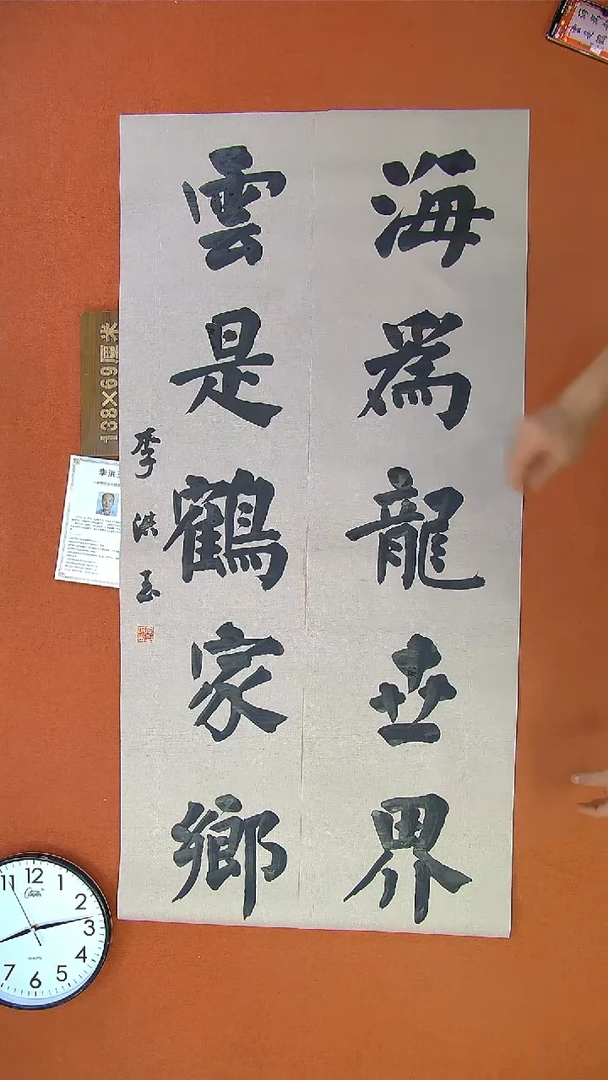 海為龍世界
雲是鶴家鄉
李洪玉
138×69厘米
李洪
11 12 1
2
3
4
5
6
7